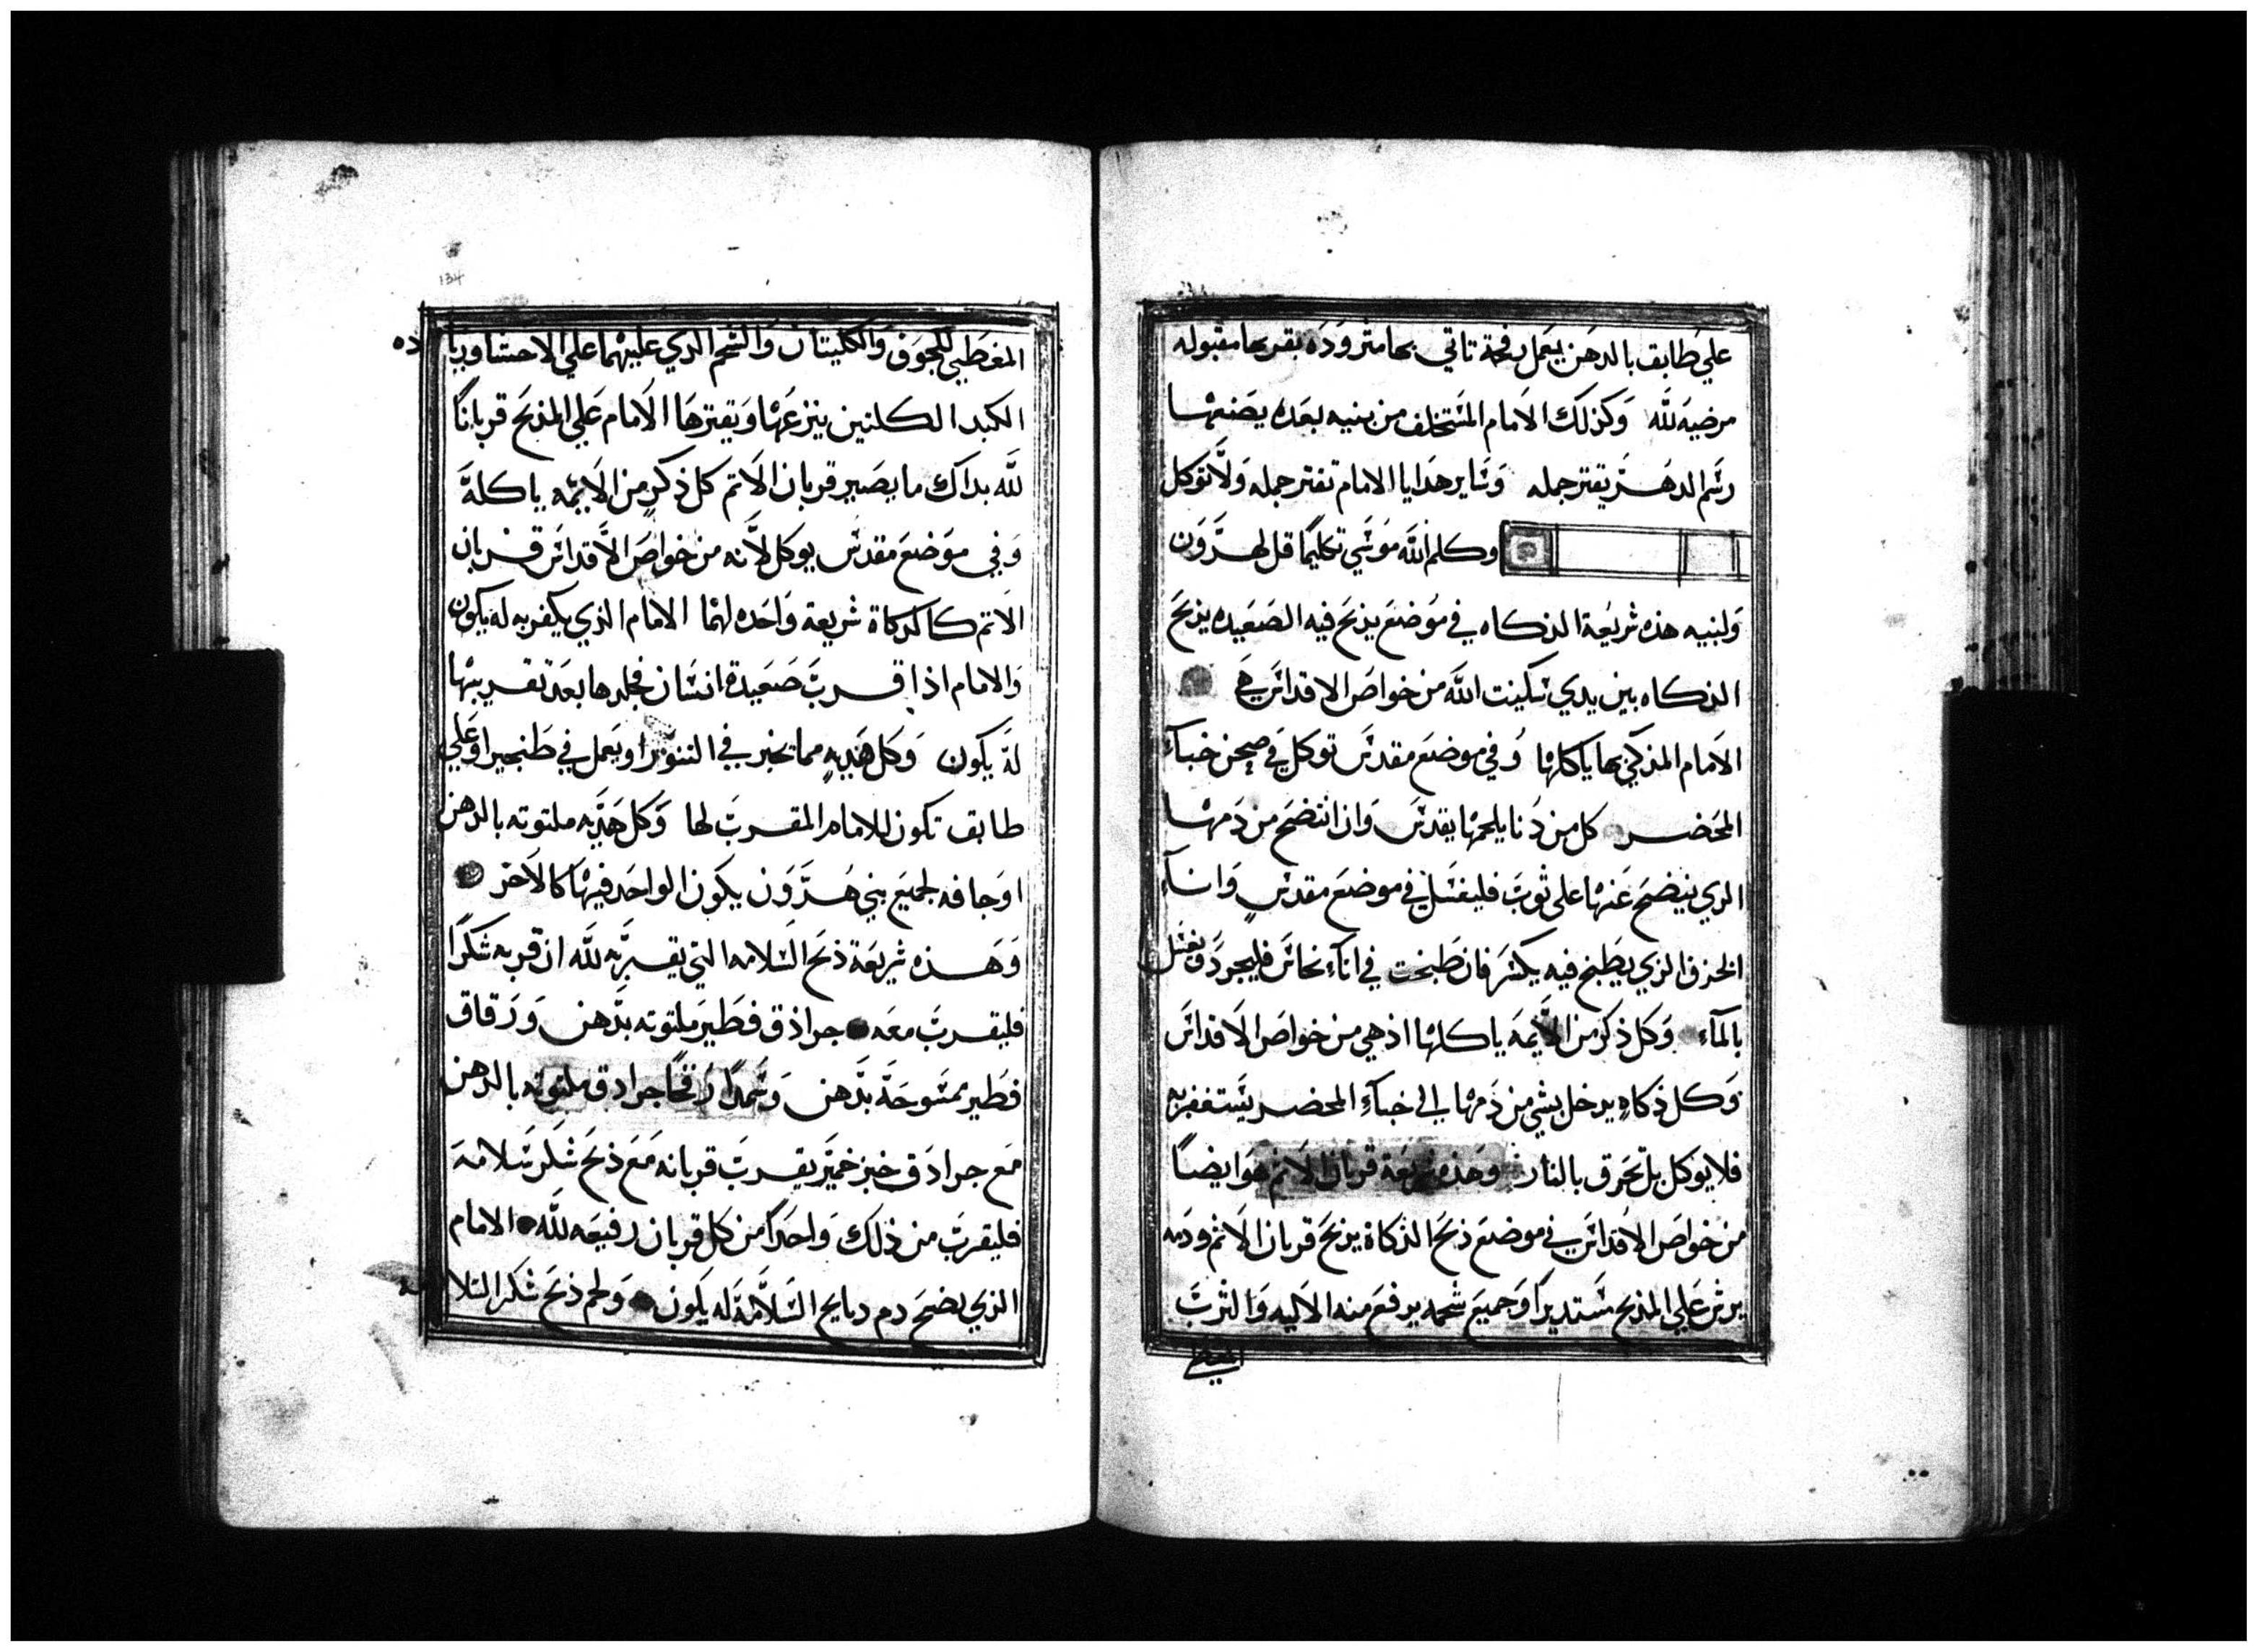 علي طابق بالدهن يعمل رفحة تاتي بها متروده بقربها مقبوله
مرضيه لله وكذلك الامام المستخلف من بنيه بعده يصنعها
رسم الدهر يقتر جمله وساير هدايا الامام تقتر جمله ولا توكل
وكلم الله موسي تكليمًا قل لهرون
ولبنيه هذه شريعة الذكاه في موضع يذبح فيه الصعيده يذبح
الذكاه بين يدي سكينت الله من خواص الاقداس هي
الامام المذكي بها ياكلها وفي موضع مقدس توكل في صحن خبآء
المحضر كل من دنا بلحمها يقدس وان انتضح من دمها
الذي ينضح عنها على ثوب فليغسل في موضع مقدس وانآء
الخزف الذي يطبخ فيه يكسر فان طبخت في انآء نحاس فليجرد ويغسل
بالمآء وكل ذكر من الايمه ياكلها اذ هي من خواص الاقداس
وكل ذكاه يدخل بشي من دمها الي خبآء المحضر يستغفر به
فلا يوكل بل تحرق بالنار وهذه شريعة قربان الاثم هو ايضاً
من خواص الاقداس في موضع ذبح الذكاة يذبح قربان الاثم ودمه
يرش علي المذبح مستديراً وجميع شحمه يرفع منه الاليه والثرب
المغطي
134
المغطي للجوف والكليتان والشحم الذي عليهما علي الاحشا وزيا
ده
الكبد الكلتين ينزعها ويقترها الامام علي المذبح قرباناً
لله بداك ما يصير قربان الاثم كل ذكر من الايمه ياكله
وفي موضع مقدس يوكل لانه من خواص الاقداس قربان
الاثم كالذكاة شريعة واحده لهما الامام الذي يكفر به له يكون
والامام اذا قرب صعيدة انسان فجلدها بعد تقريبها
له يكون وكل هديه مما تخبز في التنور او يعمل في طنجير او علي
طابق تكون للامام المقرب لها وكل هديه ملتوته بالدهن
او جافه لجميع بني هرون يكون الواحد فيها كالاخر
وهذه شريعة ذبح السلامه التي يقربه لله ان قربه شكراً
فليقرب معه جراذق فطير ملتوته بدهن ورقاق
فطير ممسوحة بدهن وسمدًا جرادق ملتوته بالدهن
مع جرادق خبز خمير يقرب قربانه مع ذبح شكر سلامة
فليقرب من ذلك واحداً من كل قربان رفيعه لله الامام
الذي ينضح دم دبايح السلامة له يكون ولحم ذبح شكر السلا
مه